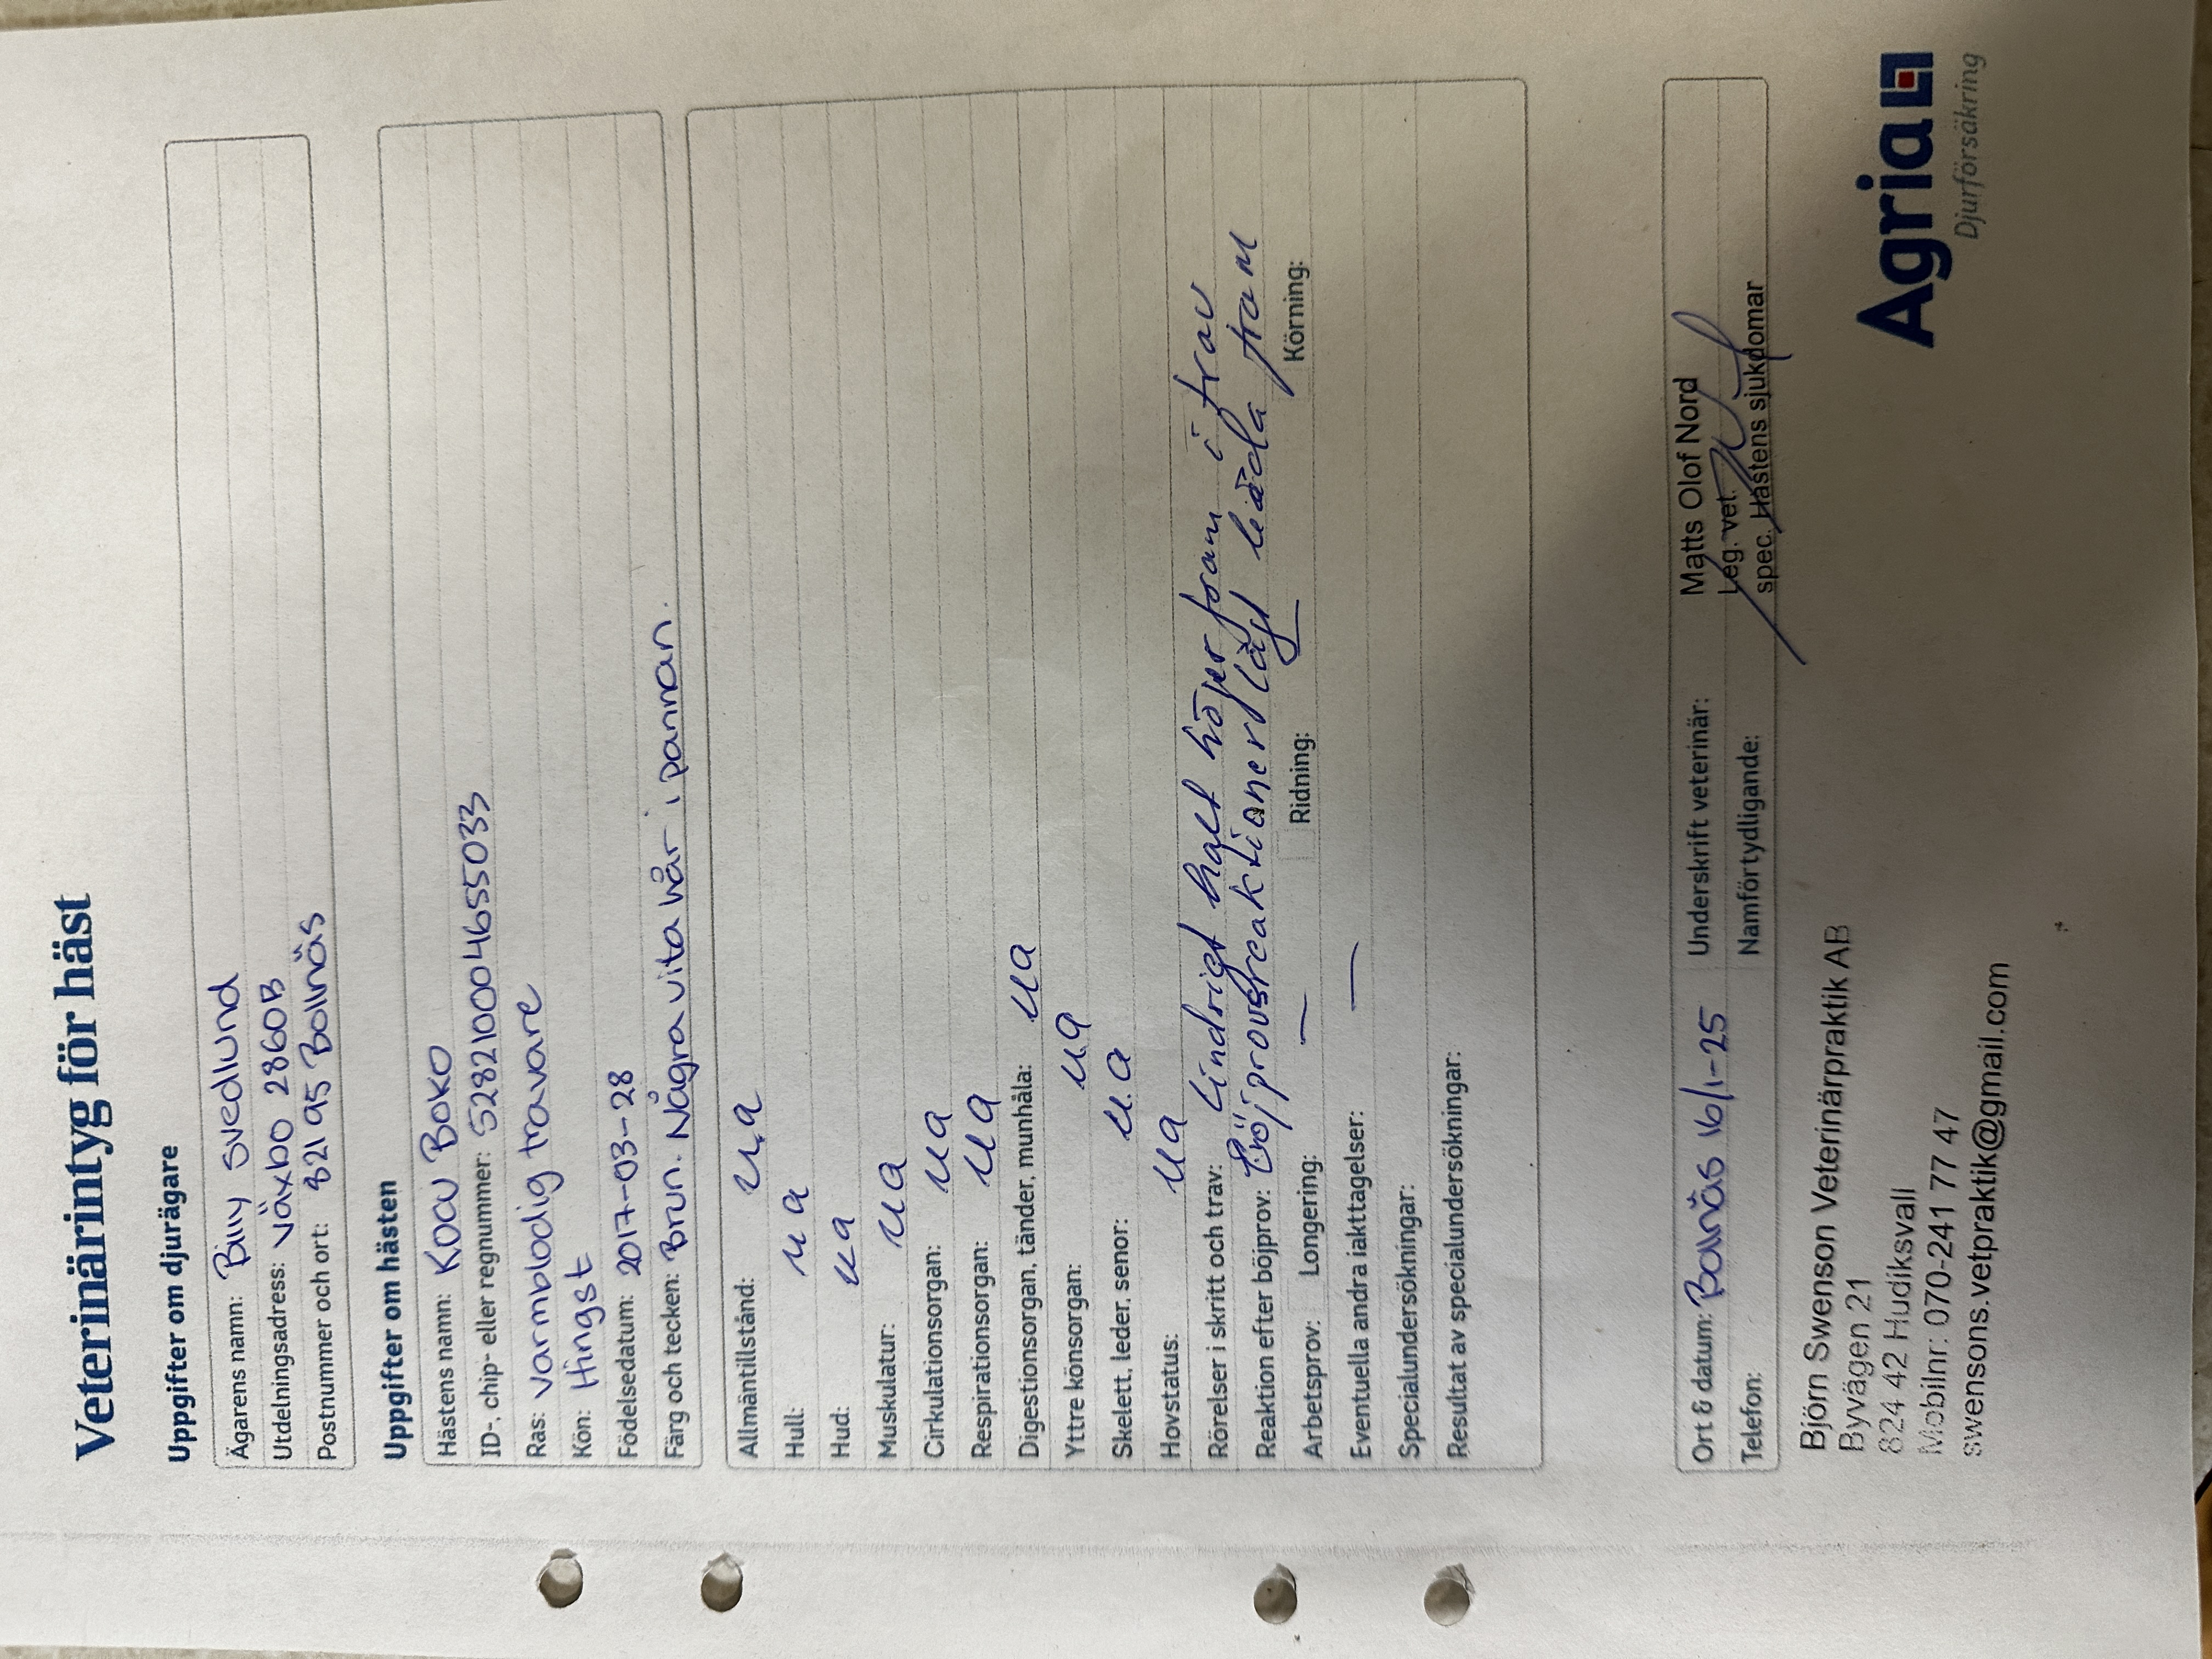 Veterinärintyg för häst
Uppgifter om djurägare
Ägarens namn: Billy Svedlund
Utdelningsadress: Växbo 2860B
Postnummer och ort: 821 95 Bollnäs
Uppgifter om hästen
Hästens namn: Kow Boko
ID-, chip- eller regnummer: 528210004655033
Ras: Varmblodig travare
Kön: Hingst
Födelsedatum: 2017-03-28
Färg och tecken: Brun. Några vita hår i pannan.
Allmäntillstånd: u.a
Hull: u a
Hud: ua
Muskulatur: ua
Cirkulationsorgan: ua
Respirationsorgan: ua
Digestionsorgan, tänder, munhåla: ua
Yttre könsorgan: u.a
Skelett, leder, senor: u.a
Hovstatus: ua
Rörelser i skritt och trav: Lindrigt halt höger fram i trav
Reaktion efter böjprov: Böjprovsreaktioner lågt båda fram
Arbetsprov: Longering: — Ridning: Körning:
Eventuella andra iakttagelser: —
Specialundersökningar:
Resultat av specialundersökningar:
Ort & datum: Bollnäs 16/1-25 Underskrift veterinär: Matts Olof Nord
Telefon: Namförtydligande: Leg. vet.
spec. Hästens sjukdomar
Björn Swenson Veterinärpraktik AB
Byvägen 21
824 42 Hudiksvall
Mobilnr: 070-241 77 47
swensons.vetpraktik@gmail.com
Agria
Djurförsäkring